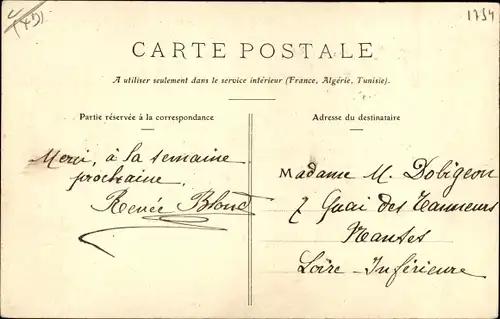 (XD)
1754
CARTE POSTALE
A utiliser seulement dans le service intérieur (France, Algérie, Tunisie).
Partie réservée à la correspondance
Adresse du destinataire
Merci, à la semaine
prochaine.
Renée Blond
Madame M. Dobigeon
7 Quai des Tanneurs
Nantes
Loire-Inférieure